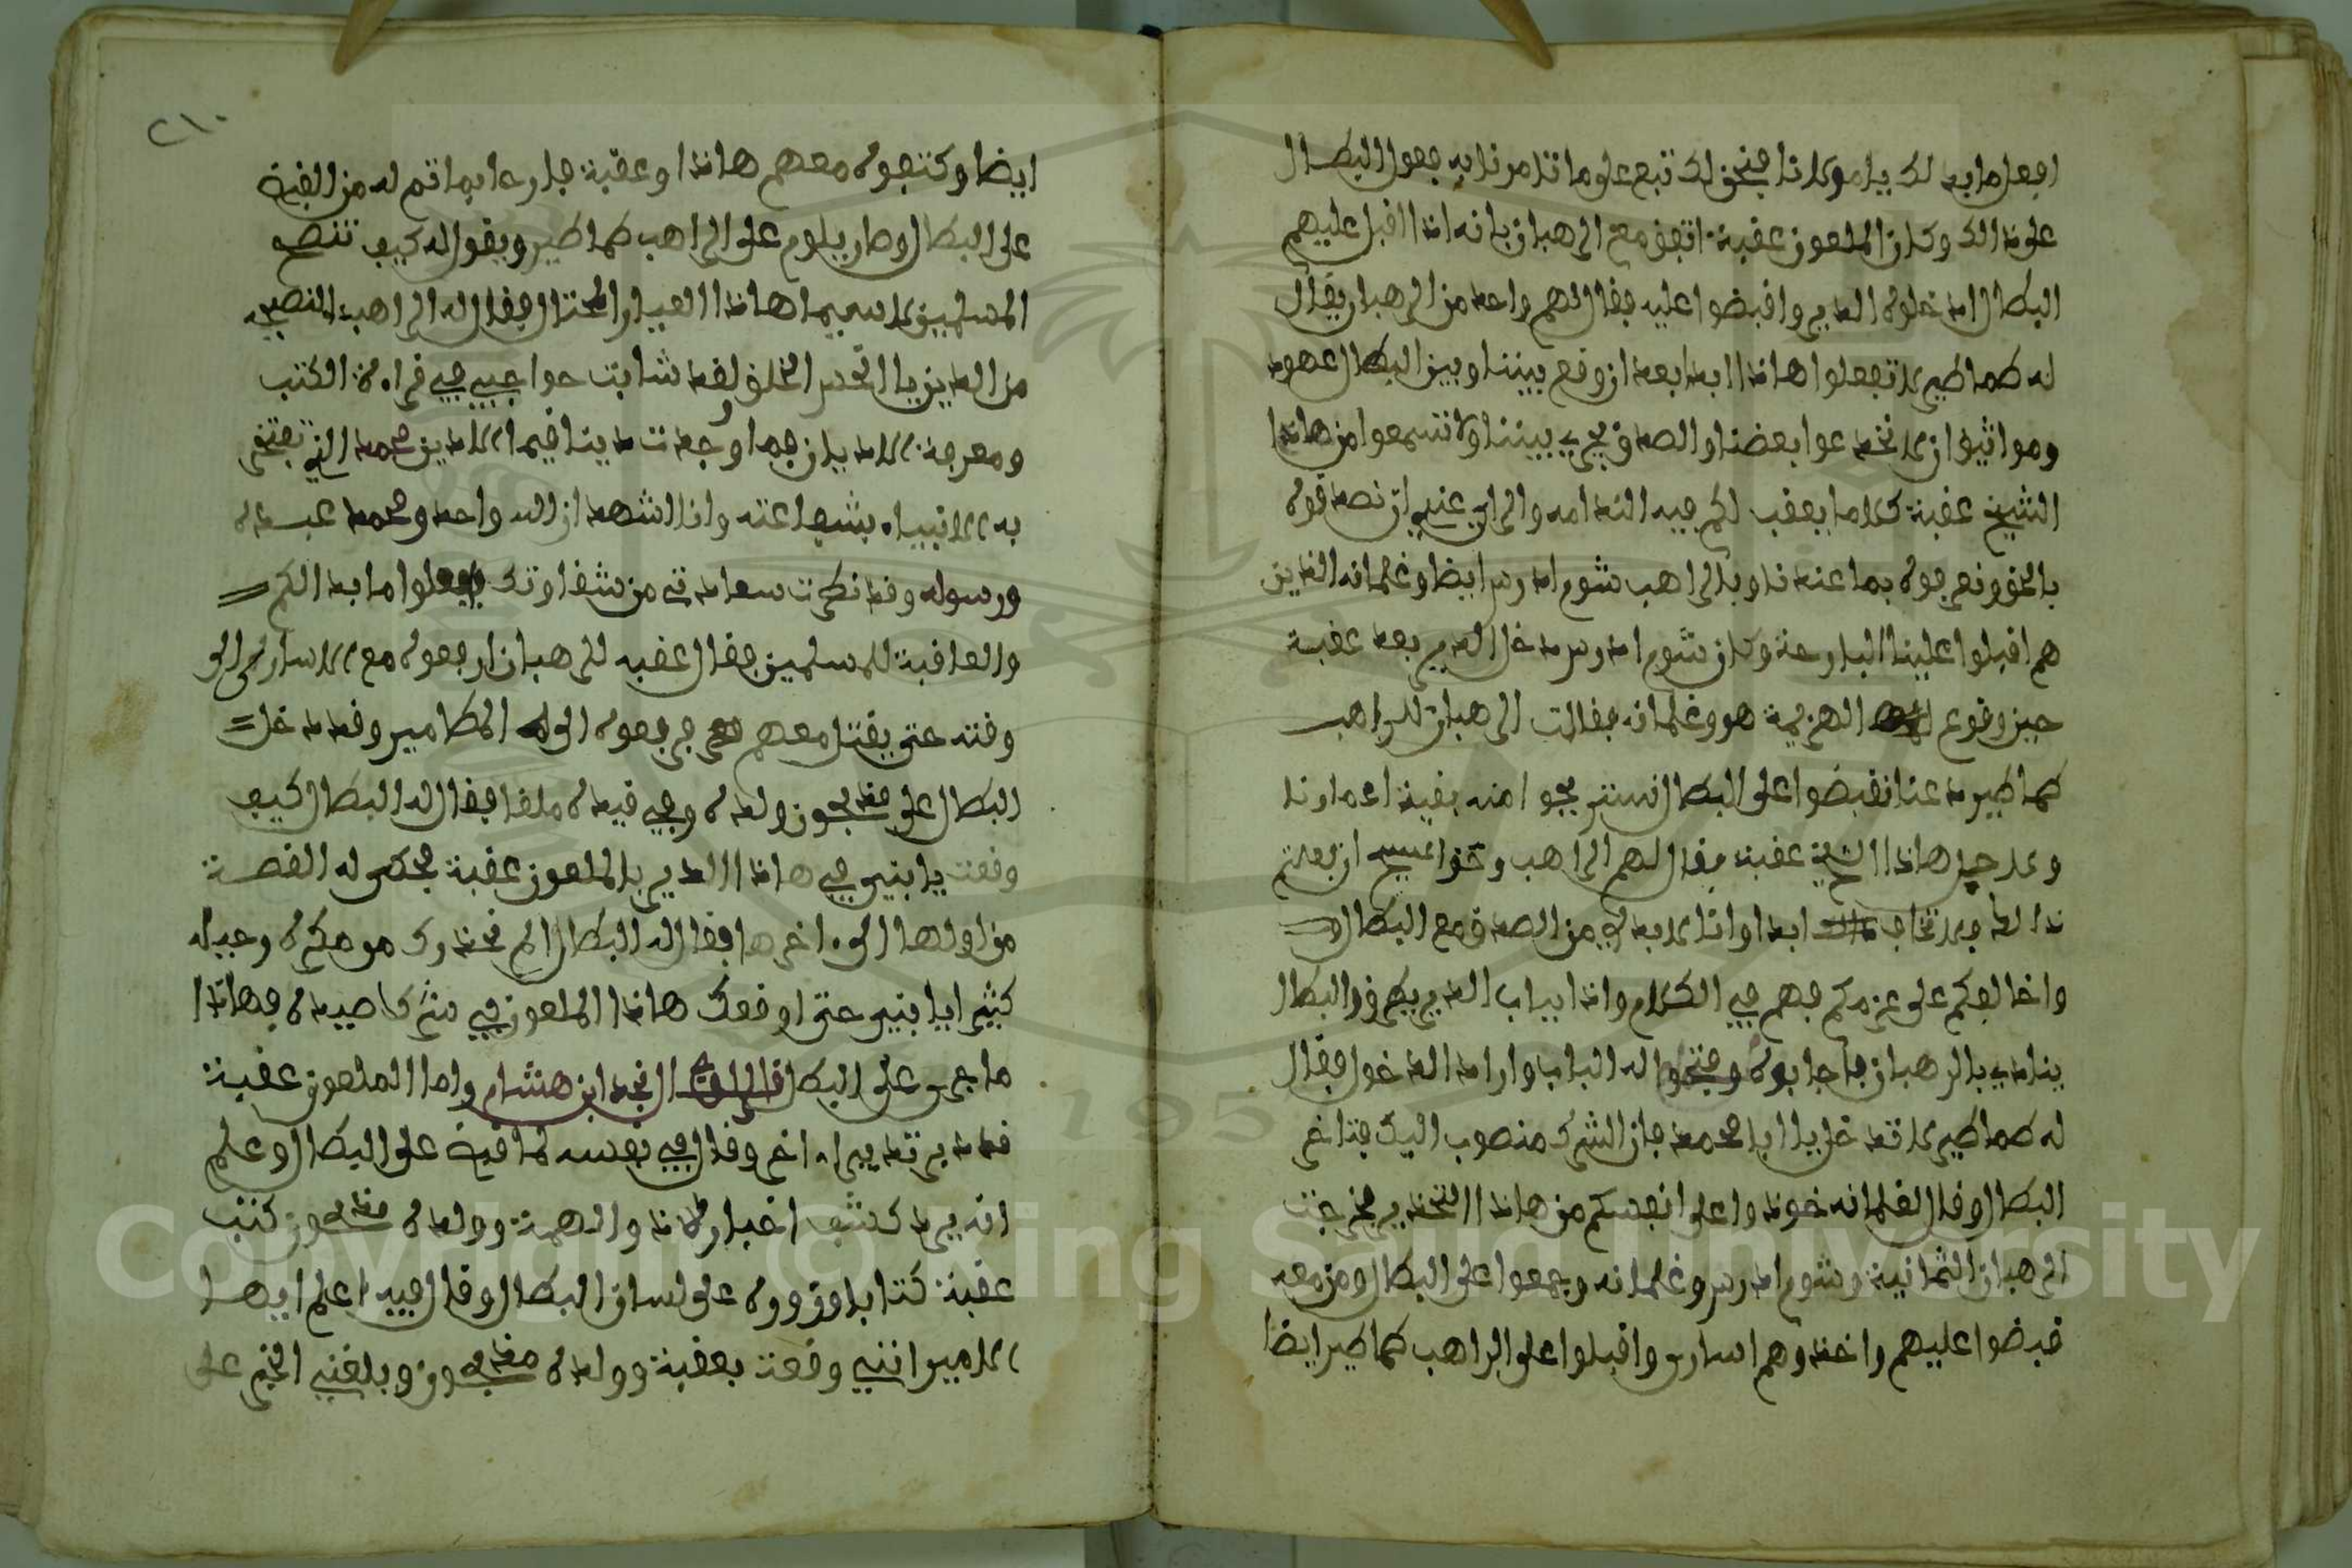 افعل ما بدا لك يا مولانا فنحن لك تبع على ما تامرنا به فعول البطال
على ذالك وكان الملعون عقبة اتفق مع الرهبان بانه اذا اقبل عليهم
البطال ادخلوه الدير واقبضوا عليه فقال لهم واحد من الرهبان يقال
له طماطير لا تفعلوا هاذا ابدا بعد ان وقع بيننا وبين البطال عهود
ومواثيق ان لا نخدعوا بعضنا والصدق يجري بيننا ولا تسمعوا من هاذا
الشيخ عقبة كلاما يعقب لكم فيه الندامه والراي عندي ان نصدقوه
بالحق ونعرفوه بما عندنا وبالراهب شوم ادرس ايضا وغلمانه الذين
هم اقبلوا علينا البارحة وكان شوم ادرس دخل الدير بعد عقبة
حين وقوع الهزيمة هو وغلمانه فقالت الرهبان للراهب
كماطير دعنا نقبضوا على البطال نستريحوا منه بقية اعمارنا
ولاجل هاذا الشيخ عقبة فقال لهم الراهب وحق المسيح ان فعلتم
ذالك فلا نخالف ابدا وانا لا بد لي من الصدق مع البطال
واخالفكم على عزمكم فهم في الكلام واذا بباب الدير يطرق والبطال
ينادي بالرهبان فاجابوه وفتحوا له الباب واراد الدخول فقال
له طماطير لا تدخل يا ابا محمد فان الشرك منصوب اليك فتاخر
البطال وقال لغلمانه خوذوا على انفسكم من هاذا التحذير فخرجت
الرهبان الثمانية وشوم ادرس وغلمانه وجمعوا على البطال ومن معه
قبضوا عليهم واخذوهم اسارى واقبلوا على الراهب كماطير ايضا
٢١٠
ايضا وكتفوه معهم هاذا وعقبة فارحا بما تم له من القبض
على البطال وصار يلوم على الراهب كماطير ويقول له كيف تنصح
المسلمين لا سيما هاذا العيار المحتال فقال له الراهب النصيحه
من الدين يا انحس الخلق لقد شابت حواجبي في قراءة الكتب
ومعرفة الاديان فما وجدت دينا قيما الا دين محمد الذي تفتخر
به الانبياء بشفاعته وانا اشهد ان الله واحد ومحمد عبده
ورسوله وقد نظرت سعادتي من شقاوتك فافعلوا ما بدا لكم
والعاقبة للمسلمين فقال عقبه للرهبان ارفعوه مع الاسارى الى
وقته حتى يقتل معهم فرفعوه الى المطامير وقد دخل
البطال على مذبحون ولده وهو في قيده ملقا فقال له البطال كيف
وقعت يا بني في هاذا الدير بالملعون عقبة فحكى له القصة
من اولها الى اخرها فقال له البطال الم نحذرك من مكره وحيله
كثيرا يا بني حتى اوقعك هاذا الملعون في شركا صيده فهاذا
ما جرى على البطال قال نجد ابن هشام واما الملعون عقبة
فقد دبر تدبيرا اخر وقال في نفسه لما قبض على البطال وعلم
انه يريد كشف اخبار ولاذ والهمة وولده مذبحون كتب
عقبة كتابا وزوره على لسان البطال وقال فيه اعلم ايها
الامير انني وقعت بعقبة وولده مذبحون وبلغني الخبر على